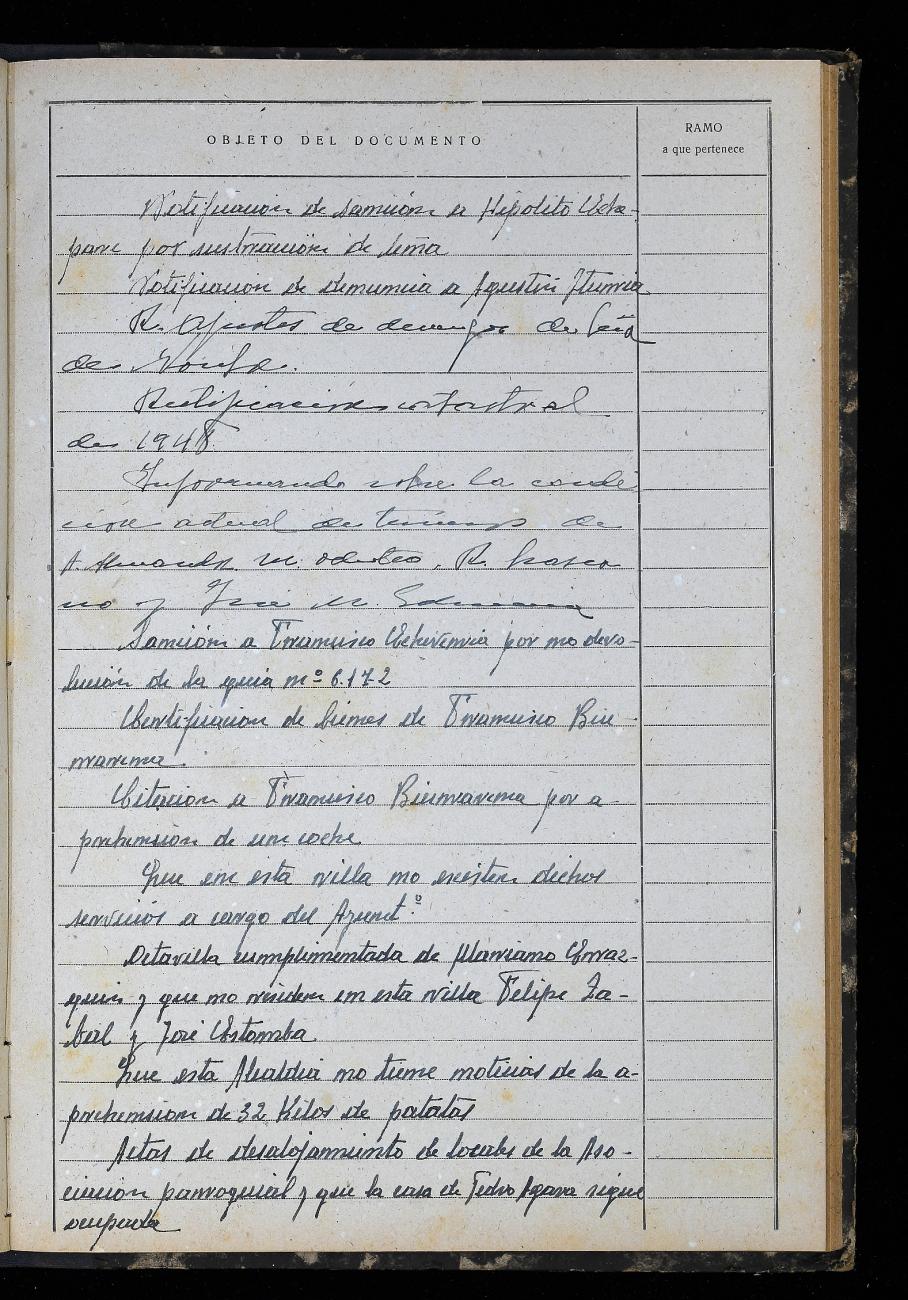 OBJETO DEL DOCUMENTO
RAMO
a que pertenece
Notificacion de sanción a Hipolito Eche-
pare por sustración de leña
Notificacion de denuncia a Agustin Iturria
R. Ajustes de devengos de leña
de
Rectificación catastral
de 1948
Informando sobre la condi
ción actual de de
A. M. R.
no y José M.
Sanción a Francisco Echeverria por no devo-
lución de la guia nº 6.172
Certificacion de bienes de Francisco Bien-
Citacion a Francisco por a-
prehension de un coche
Que en esta villa no existen dichos
servicios a cargo del Ayunt.º
cumplimentada de Mariano Erraz-
quin y que no residen en esta villa Felipe Za-
bal y José Estomba
Que esta Alcaldia no tiene noticias de la a-
prehension de 32 Kilos de patatas
Actas de desalojamiento de locales de la Aso-
ciacion parroquial y que la casa de Pedro Agara sigue
ocupada